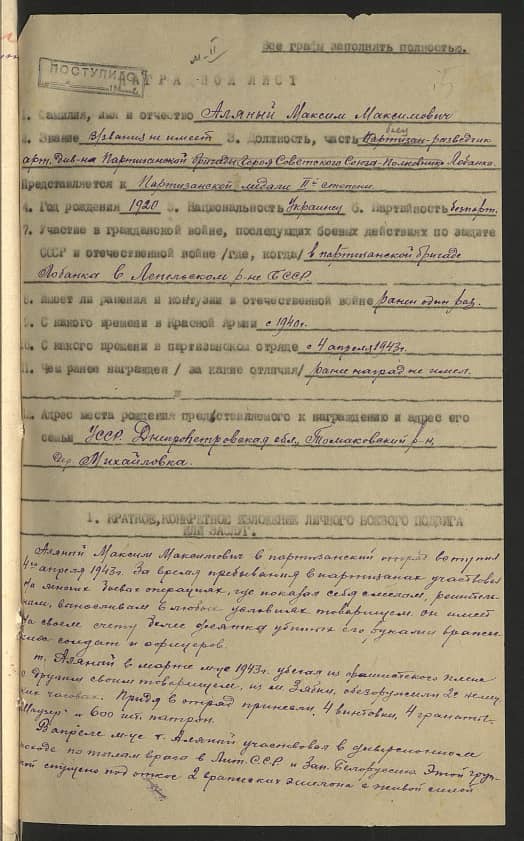 Все графы заполнять полностью.
м-II
ПОСТУПИЛО
НАГРАДНОЙ ЛИСТ
1. Фамилия, имя и отчество Аляный Максим Максимович
2. Звание в/звания не имеет 3. Должность, часть Партизан-разведчик
арт. див-на Партизанской бригады Героя Советского Союза-Полковника Лобанка.
Представляется к Партизанской медали II-й степени.
4. Год рождения 1920 5. Национальность Украинец 6. Партийность беспарт.
7. Участие в гражданской войне, последующих боевых действиях по защите
СССР и отечественной войне /где, когда/ в партизанской бригаде
Лобанка в Лепельском р-не БССР.
8. Имеет ли ранения и контузии в отечественной войне ранен один раз.
9. С какого времени в Красной Армии с 1940г.
10. С какого времени в партизанском отряде с 4 апреля 1943г.
11. Чем ранее награжден / за какие отличия/ ранее наград не имел.
12. Адрес места рождения представляемого к награждению и адрес его
семьи УССР. Днипропетровская обл, Томаковский р-н,
Михайловка.
1. КРАТКОЕ, КОНКРЕТНОЕ ИЗЛОЖЕНИЕ ЛИЧНОГО БОЕВОГО ПОДВИГА
ИЛИ ЗАСЛУГ.
Аляный Максим Максимович в партизанский отряд вступил
4го апреля 1943г. За время пребывания в партизанах участвовал
на многих боевых операциях, где показал себя смелым, решитель-
ным, выносливым в любых условиях товарищем. он имеет
на своем счету более десятка убитых его руками вражес-
ких солдат и офицеров.
т. Аляный в марте м-це 1943г. убегал из фашистского плена
с другим своим товарищем, из м. Зябки, обезоружили 2х немец-
ких часовых. Придя в отряд принесли, 4 винтовки, 4 гранаты,
"Маузер" и 600 шт. патрон.
В апреле м-це т. Аляный участвовал в диверсионном
походе по тылам врага в Лит. ССР и Зап. Белоруссии. Этой груп-
пой спущено под откос 2 вражеских эшелона с живой силой